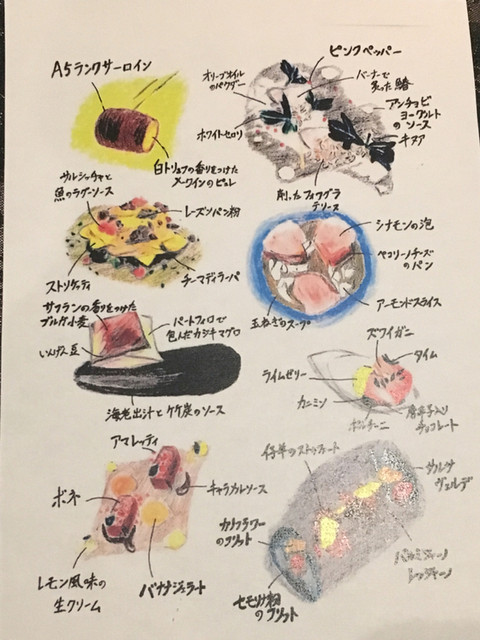 A5ランクサーロイン
白トリュフの香りをつけた
メークインのピュレ
ピンクペッパー
オリーブオイル
のパウダー
バーナーで
炙った鰆
アンチョビ
ヨーグルト
のソース
ホワイトセロリ
キヌア
削ったフォワグラ
テリーヌ
サルシッチャと
魚のラグーソース
レーズンパン粉
ストリゲッティ
チーマディラーパ
シナモンの泡
ペコリーノチーズ
のパン
アーモンドスライス
玉ねぎのスープ
サフランの香りをつけた
ブルガ小麦
パートフィロで
包んだカジキマグロ
いんげん豆
海老出汁と竹炭のソース
ズワイガニ
タイム
ライムゼリー
カニミソ
唐辛子入り
チョコレート
アマレッティ
ボネ
キャラメルソース
レモン風味の
生クリーム
バナナジェラート
仔羊のストゥファート
サルサ
ヴェルデ
カリフラワー
のフリット
セモリナ粉
のフリット
パルミジャーノ
レッジャーノ